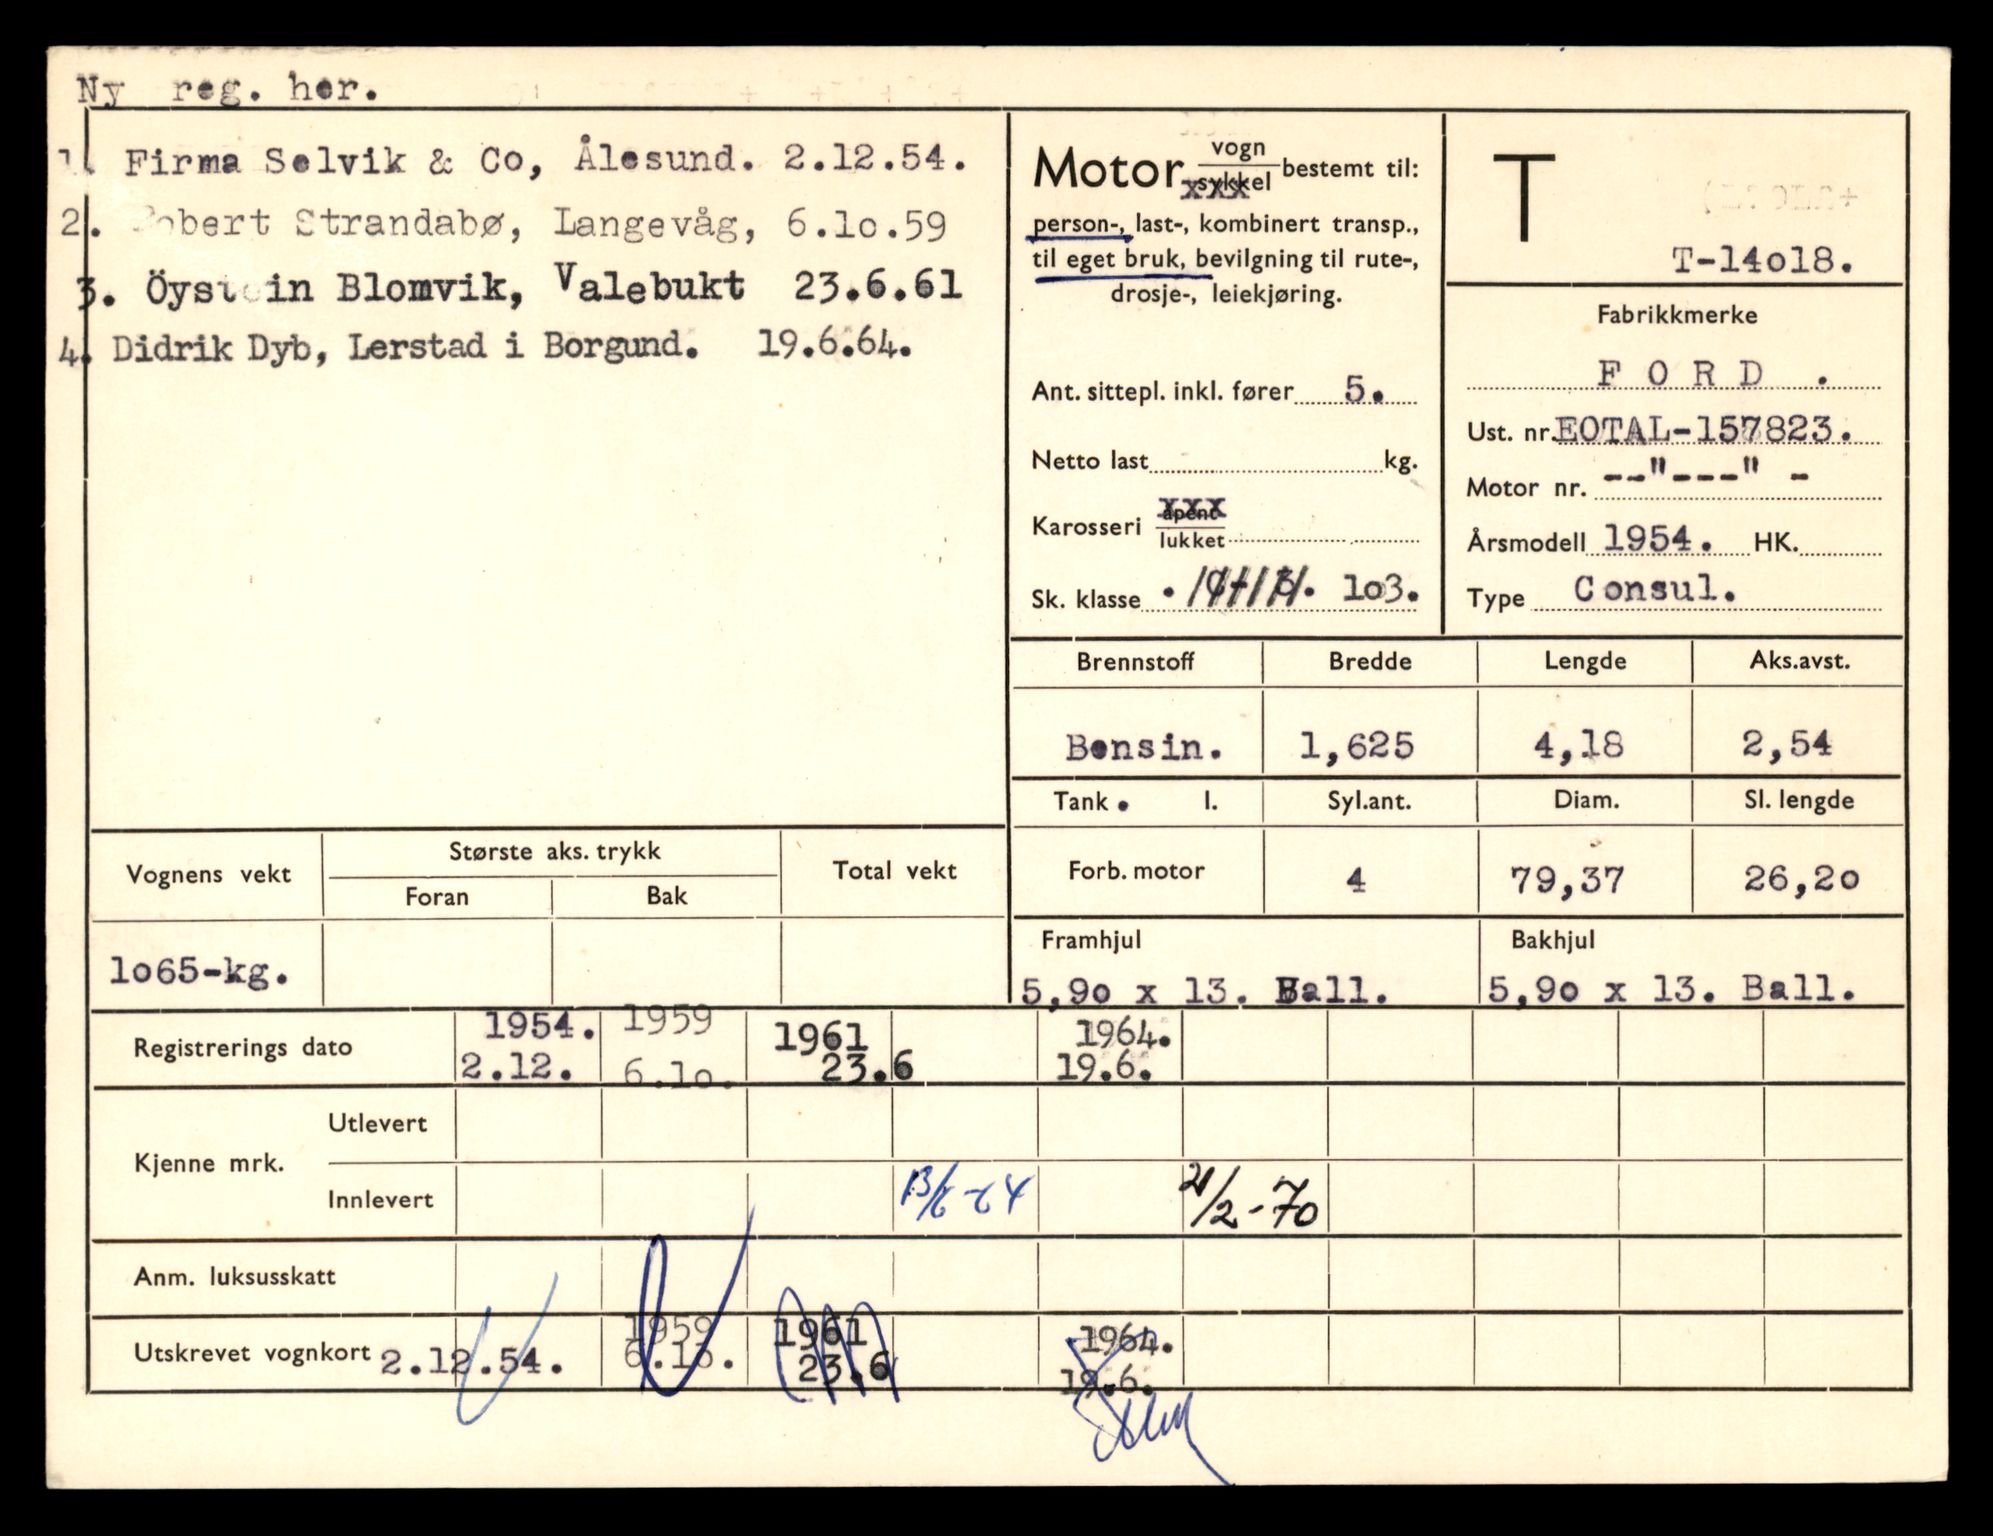 Ny reg. her.
1. Firma Selvik & Co, Ålesund. 2.12.54.
2. Robert Strandabø, Langevåg, 6.1o.59
3. Öystein Blomvik, Valebukt 23.6.61
4. Didrik Dyb, Lerstad i Borgund. 19.6.64.
Motor vogn sykkel bestemt til:
xxx
person-, last-, kombinert transp.,
til eget bruk, bevilgning til rute-,
drosje-, leiekjøring.
Ant. sittepl. inkl. fører 5.
Netto last kg.
Karosseri åpent xxx
lukket
Sk. klasse . 1o3.
T
T-14o18.
Fabrikkmerke
F O R D .
Ust. nr. EOTAL-157823.
Motor nr. --"---" -
Årsmodell 1954. HK.
Type Consul.
Brennstoff Bredde Lengde Aks.avst.
Bensin. 1,625 4,18 2,54
Tank . l. Syl.ant. Diam. Sl. lengde
Forb. motor 4 79,37 26,2o
Framhjul Bakhjul
5,9o x 13. Ball. 5,9o x 13. Ball.
Vognens vekt Største aks. trykk Total vekt
Foran Bak
1o65-kg.
Registrerings dato 1954. 1959 1961 1964.
2.12. 6.1o. 23.6 19.6.
Kjenne mrk. Utlevert
Innlevert 21/2-70
Anm. luksusskatt
Utskrevet vognkort 2.12.54. 1959 1961 1964.
6.1o. 23.6 19.6.